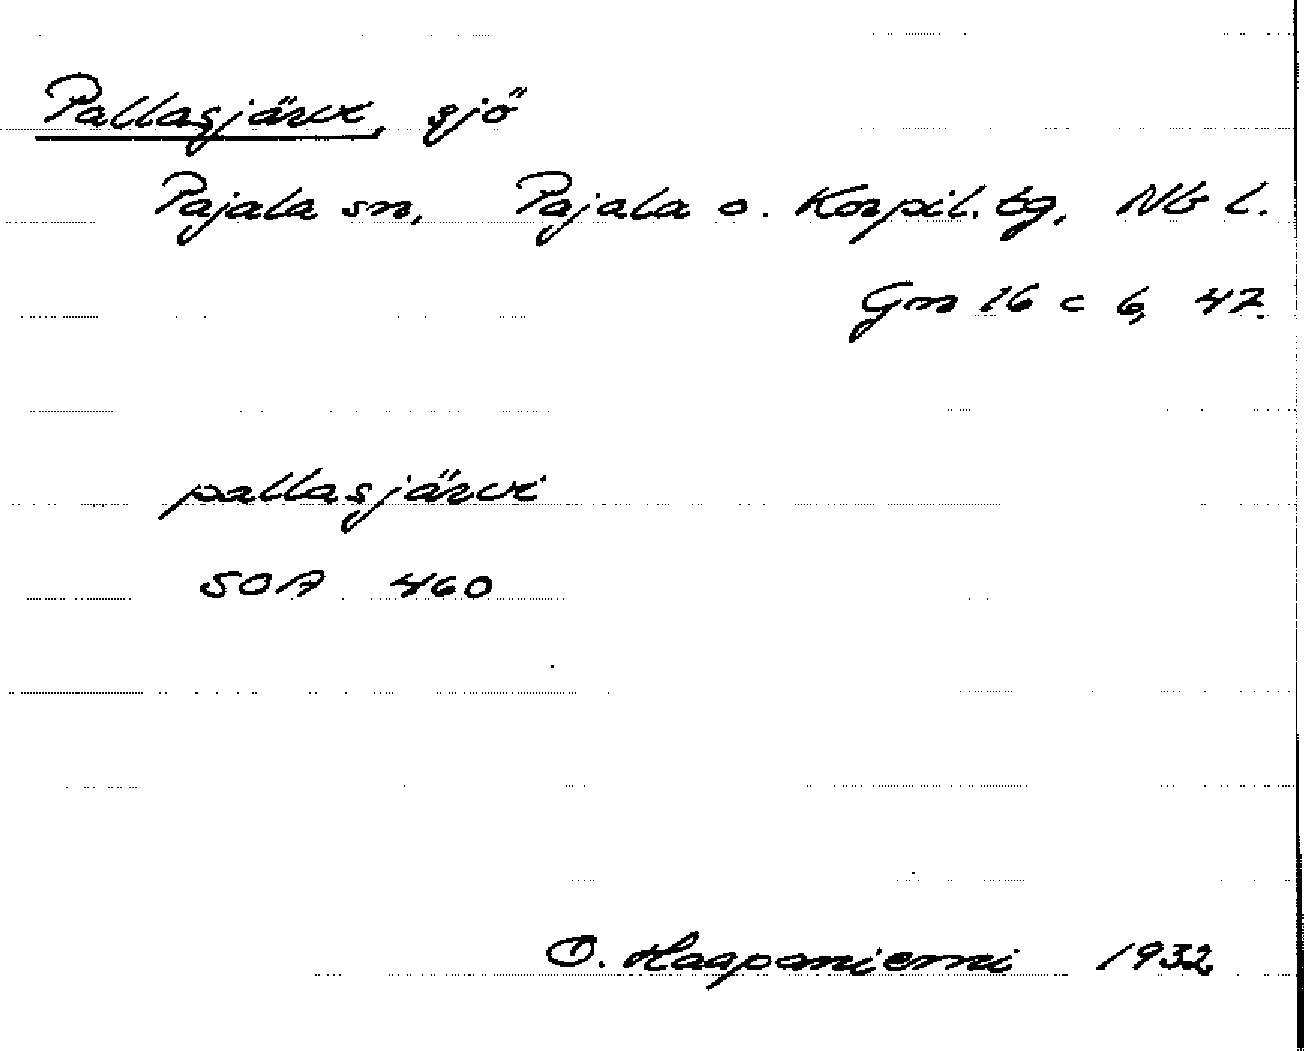 Pallasjärvi, sjö
Pajala sn, Pajala o. Korpil. tg, Nb l.
Gn 16 c 6, 47.
pallasjärvi
SOA 460
O. Haapaniemi 1932